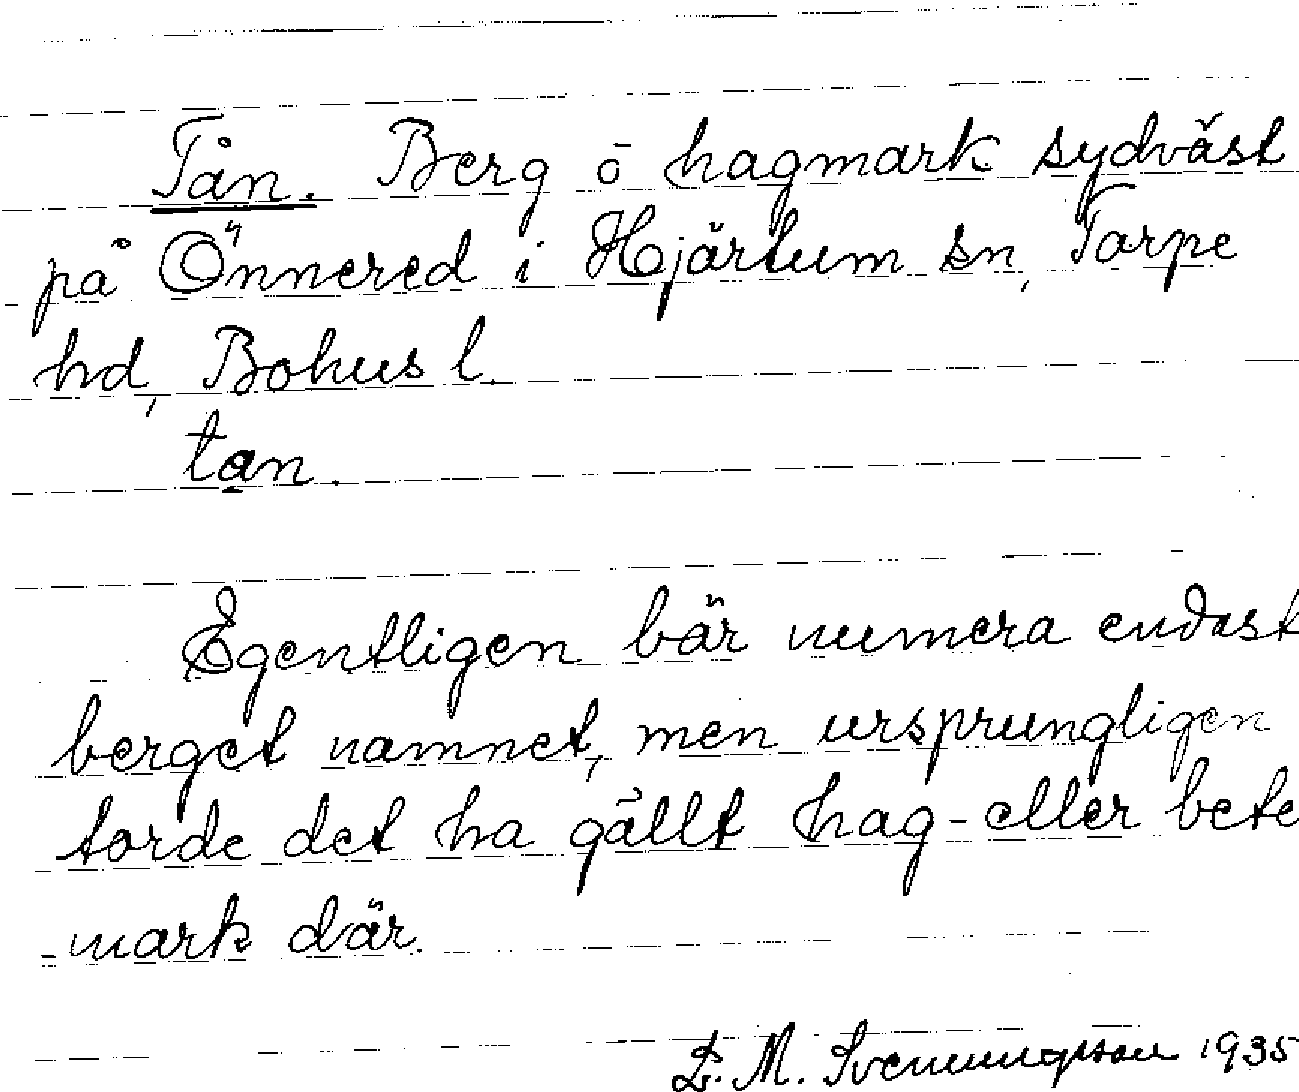 Tån. Berg o hagmark sydväst
på Önnered i Hjärtum sn, Torpe
hd, Bohus l.
tan.
Egentligen bär numera endast
berget namnet, men ursprungligen
torde det ha gällt hag- eller bete
mark där.
D. M. Svenningson 1935